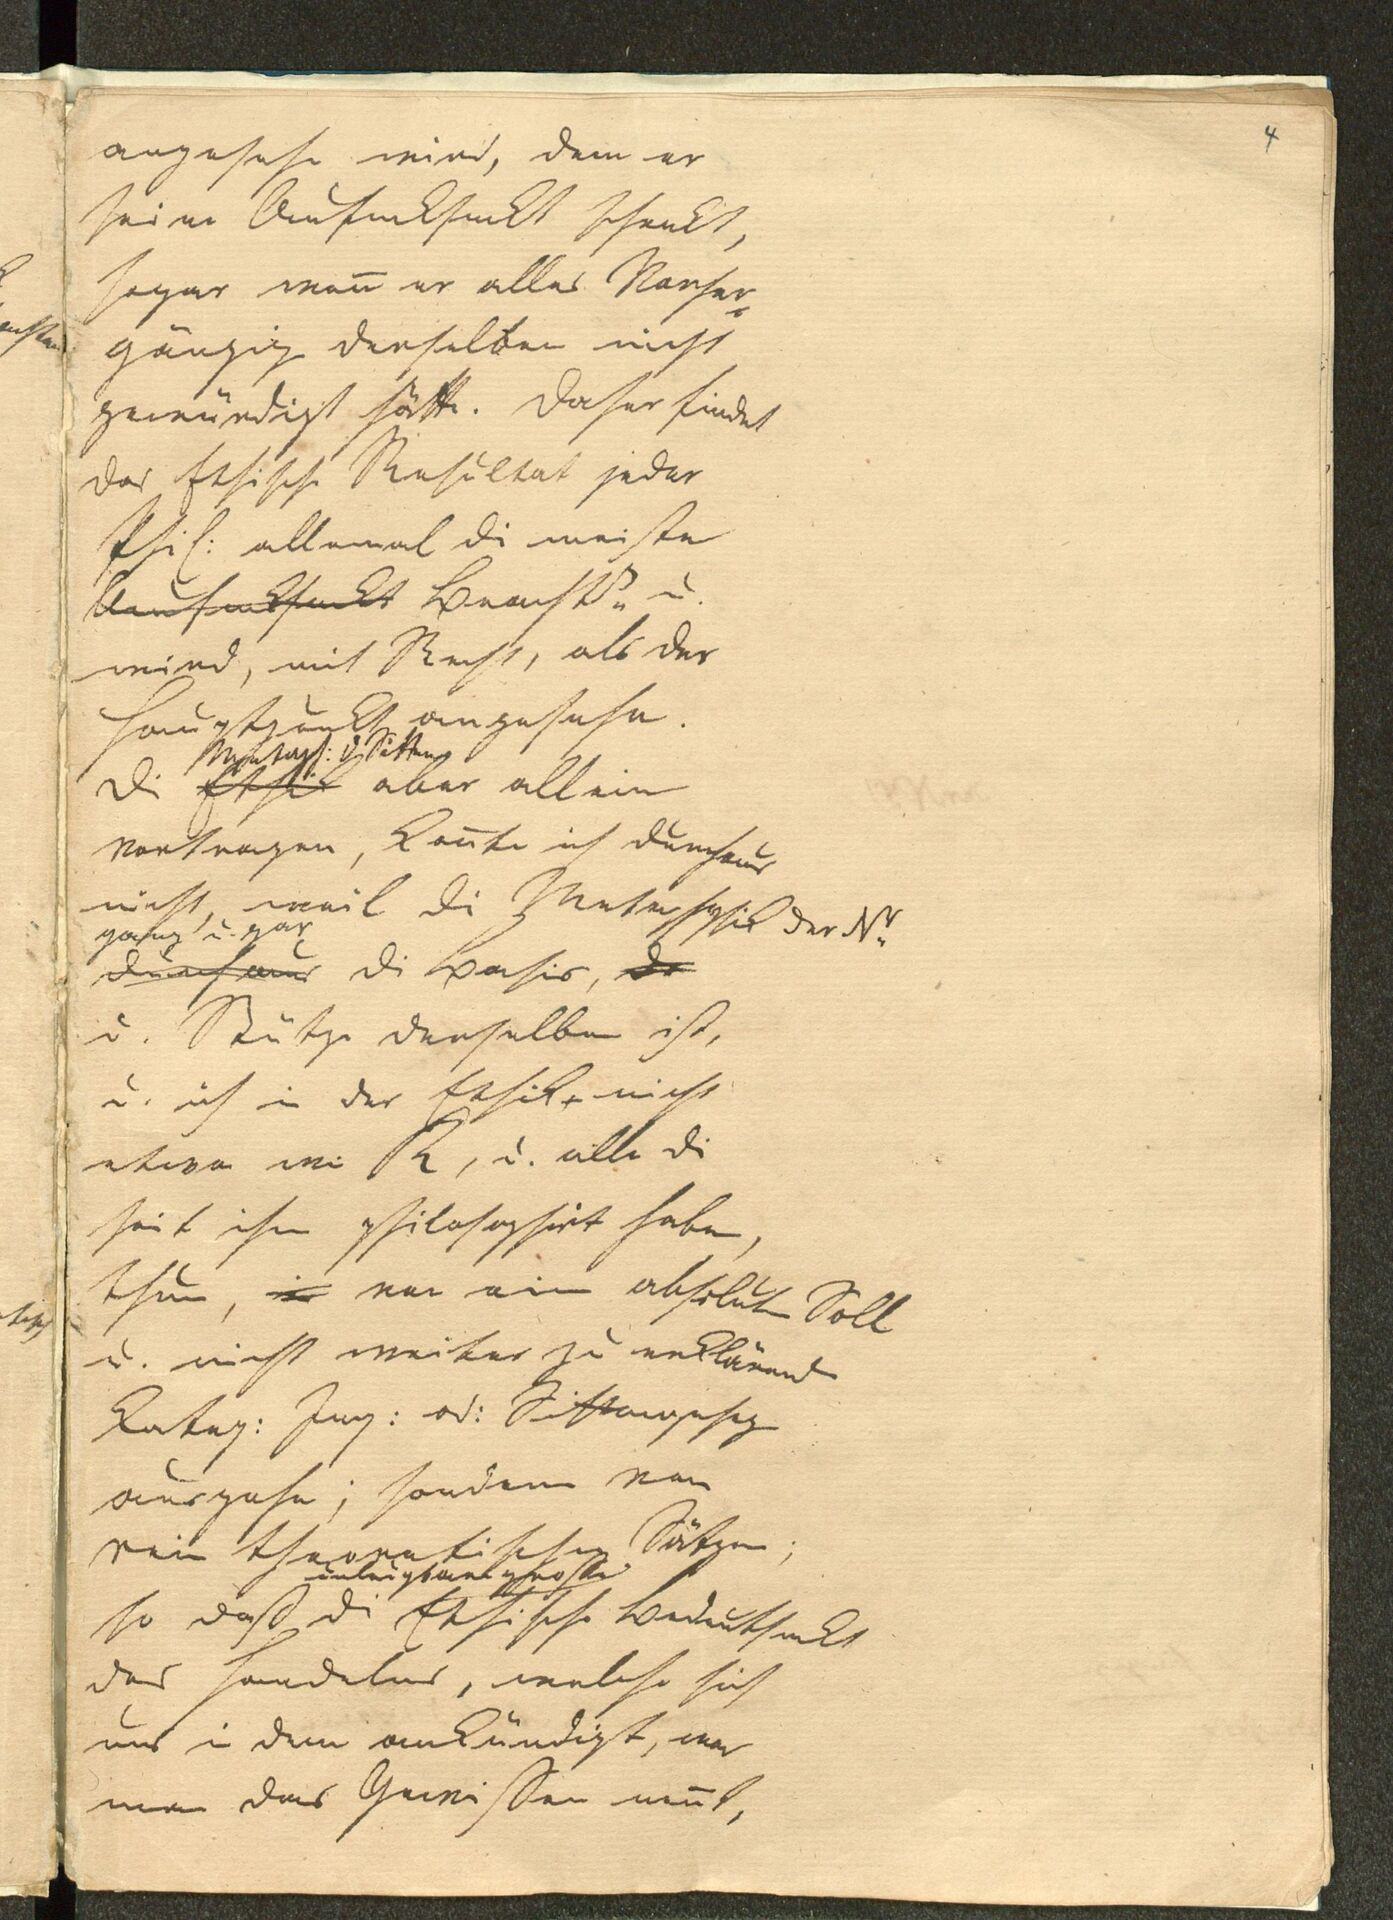 4
angesehn wird, dem er
seine Aufmerksamkt schenkt,
sogar wenn er alles Vorher-
gängige derselben nicht
gewürdigt hätte. Daher findet
das Ethische Resultat jeder
Phil: allemal di meiste
Aufmerksamkt Beachtg u.
wird, mit Recht, als der
Hauptpunkt angesehn.
Metaph: d. Sitten
Di Ethik aber allein
vortragen, konnte ich durchaus
nicht, weil di Metaphysik der Nr
ganz u. gar
durchaus di Basis, de
u. Stütze derselben ist,
u. ich in der Ethik nicht
etwa wie K, u. alle di
seit ihm philosophirt haben,
thun, von eim absolutn Soll
u. nicht weiter zu erklärend
Kateg: Imp: od: Sittengesetz
ausgehe; sondern von
rein theoretischen Sätzen;
unleugbare große
so daß di Ethische Bedeutsamkt
des Handelns, welche sich
uns in dem ankündigt, was
man das Gewissen nennt,